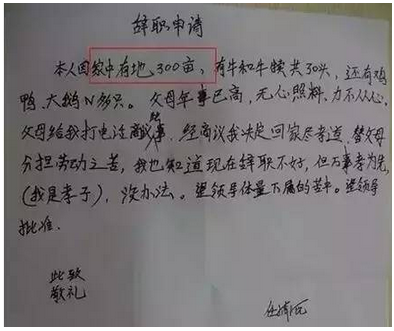 辞职申请
本人因家中有地300亩，有牛和牛犊共30头，还有鸡
鸭、大鹅N多只。父母年事已高，无心照料，力不从心。
父母给我打电话商议此事，经商议我决定回家尽孝道，替父母
分担劳动之苦，我也知道现在辞职不好，但万事孝为先，
(我是孝子)，没办法。望领导体量下属的苦中。望领导
批准。
此致
敬礼